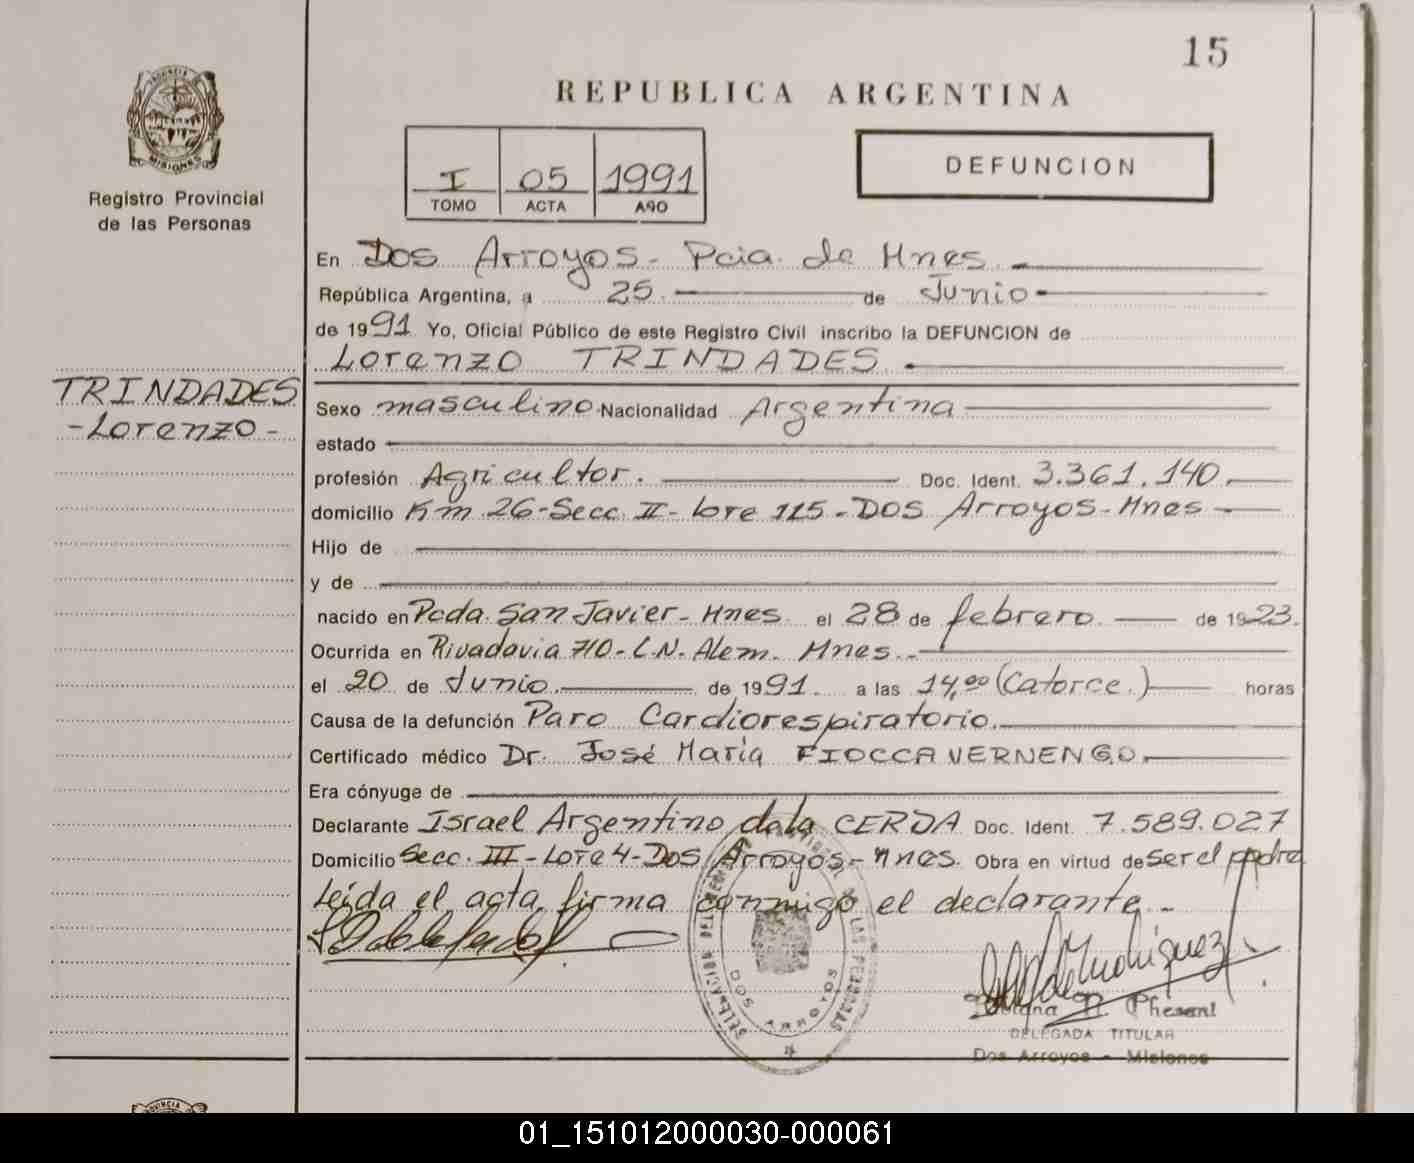 15
REPUBLICA ARGENTINA
PROVINCIA DE
MISIONES
Registro Provincial
de las Personas
I 05 1991
TOMO ACTA AÑO
DEFUNCION
En Dos Arroyos - Pcia. de Mnes
República Argentina, a 25 de Junio
de 1991 Yo, Oficial Público de este Registro Civil inscribo la DEFUNCION de
Lorenzo TRINDADES
TRINDADES
- Lorenzo -
Sexo masculino Nacionalidad Argentina
estado
profesión Agricultor. Doc. Ident. 3.361.140
domicilio Km 26 - Secc. II - Lote 115 - Dos Arroyos - Mnes
Hijo de
y de
nacido en Pcda. San Javier - Mnes. el 28 de febrero de 1923.
Ocurrida en Rivadavia 710 - L.N. Alem. Mnes.
el 20 de Junio de 1991. a las 14,00 (Catorce.) horas
Causa de la defunción Paro Cardiorespiratorio.
Certificado médico Dr. José María FIOCCA VERNENGO
Era cónyuge de
Declarante Israel Argentino de la CERDA Doc. Ident. 7.589.027
Domicilio Secc. III - Lote 4 - Dos Arroyos - Mnes. Obra en virtud de ser el padre
Leída el acta, firma conmigo el declarante. -
DOS ARROYOS
DELEGADA TITULAR
Dos Arroyos - Misiones
01_151012000030-000061